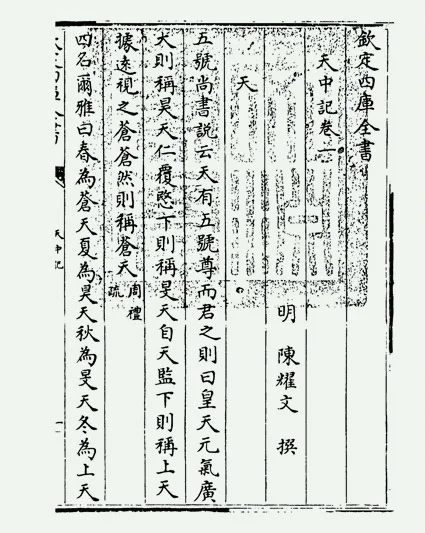 欽定四庫全書
天中記卷一
明 陳耀文 撰
天
五號尚書說云天有五號尊而君之則曰皇天元氣廣
大則稱昊天仁覆愍下則稱旻天自天監下則稱上天
據遠視之蒼蒼然則稱蒼天周禮疏
四名爾雅曰春為蒼天夏為昊天秋為旻天冬為上天
天中記